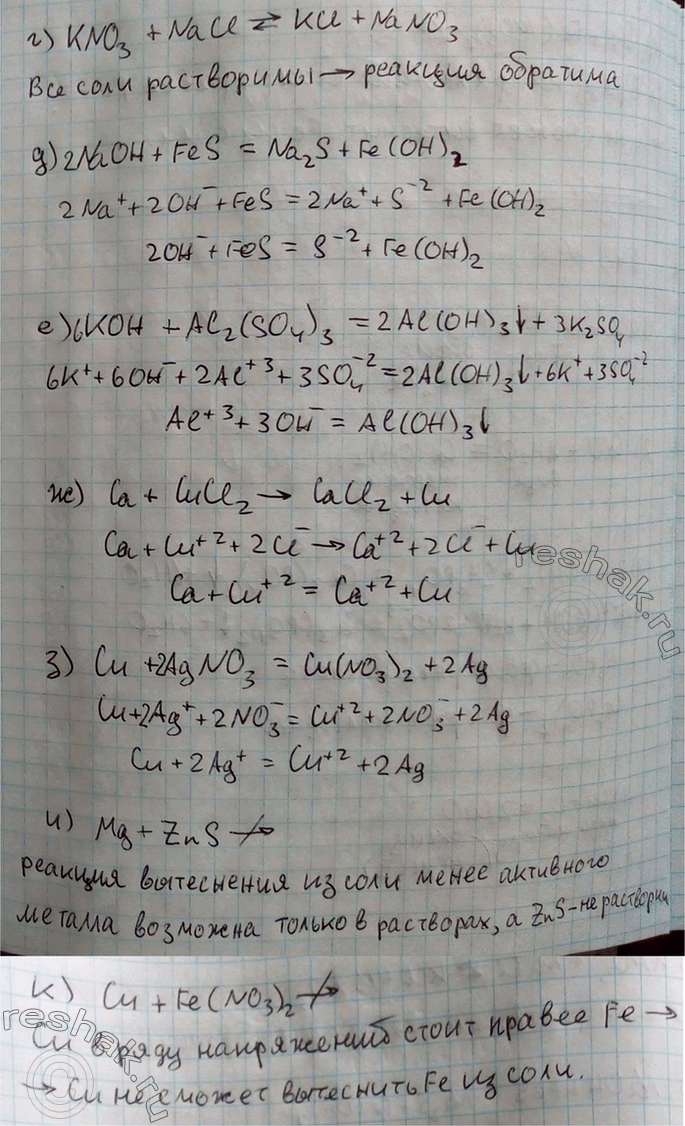 г) KNO₃ + NaCl ⇄ KCl + NaNO₃
Все соли растворимы → реакция обратима
д) 2NaOH + FeS = Na₂S + Fe(OH)₂
2Na⁺ + 2OH⁻ + FeS = 2Na⁺ + S⁻² + Fe(OH)₂
2OH⁻ + FeS = S⁻² + Fe(OH)₂
е) 6KOH + Al₂(SO₄)₃ = 2Al(OH)₃↓ + 3K₂SO₄
6K⁺ + 6OH⁻ + 2Al⁺³ + 3SO₄⁻² = 2Al(OH)₃↓ + 6K⁺ + 3SO₄⁻²
Al⁺³ + 3OH⁻ = Al(OH)₃↓
ж) Ca + CuCl₂ → CaCl₂ + Cu
Ca + Cu⁺² + 2Cl⁻ → Ca⁺² + 2Cl⁻ + Cu
Ca + Cu⁺² = Ca⁺² + Cu
reshak.ru
з) Cu + 2AgNO₃ = Cu(NO₃)₂ + 2Ag
Cu + 2Ag⁺ + 2NO₃⁻ = Cu⁺² + 2NO₃⁻ + 2Ag
Cu + 2Ag⁺ = Cu⁺² + 2Ag
и) Mg + ZnS ↛
реакция вытеснения из соли менее активного
металла возможна только в растворах, а ZnS - не растворим
к) Cu + Fe(NO₃)₂ ↛
Cu в ряду напряжений стоит правее Fe →
→ Cu не сможет вытеснить Fe из соли.
reshak.ru